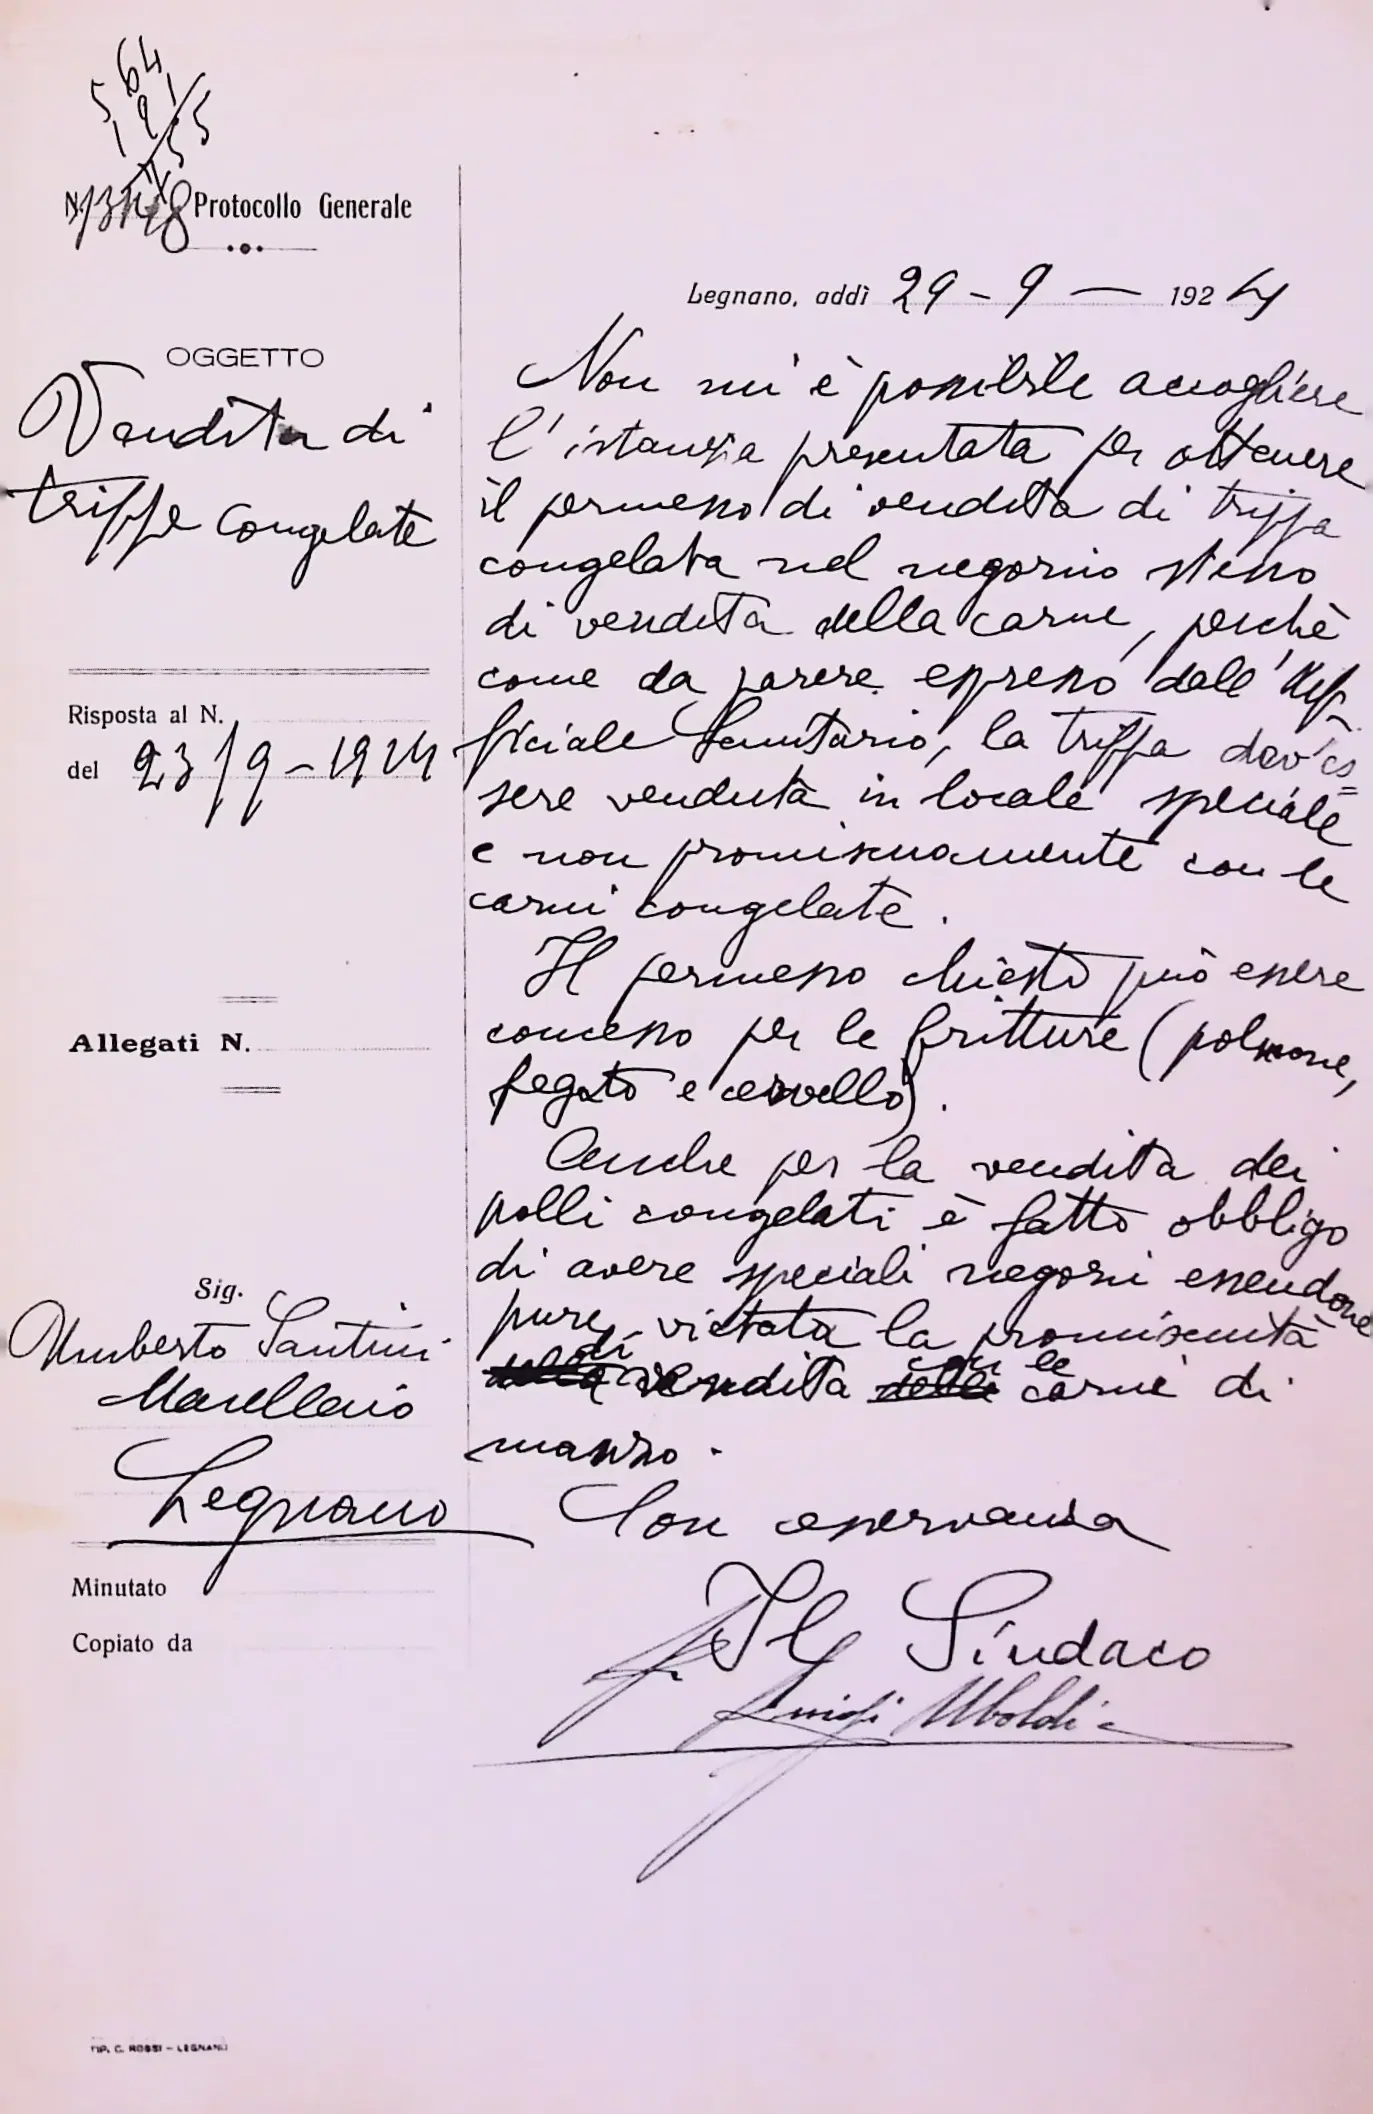 N. Protocollo Generale
OGGETTO
Vendita di
trippe congelate
Risposta al N.
del 23/9-1924
Allegati N.
Sig.
Umberto Santini
Macellaio
Legnano
Minutato
Copiato da
TIP. C. ROSSI - LEGNANO
Legnano, addì 29-9- 1924
Non mi è possibile accogliere
l'istanza presentata per ottenere
il permesso di vendita di trippa
congelata nel negozio stesso
di vendita della carne, perchè
come da parere espresso dall'Uf-
ficiale Sanitario, la trippa dev'es=
sere venduta in locale speciale
e non promiscuamente con le
carni congelate.
Il permesso chiesto può essere
concesso per le fritture (polmone,
fegato e cervello).
Anche per la vendita dei
polli congelati è fatto obbligo
di avere speciali negozi essendone
pure vietata la promiscuità
di vendita con le carne di
manzo.
Con osservanza
Il Sindaco
Luigi Uboldi